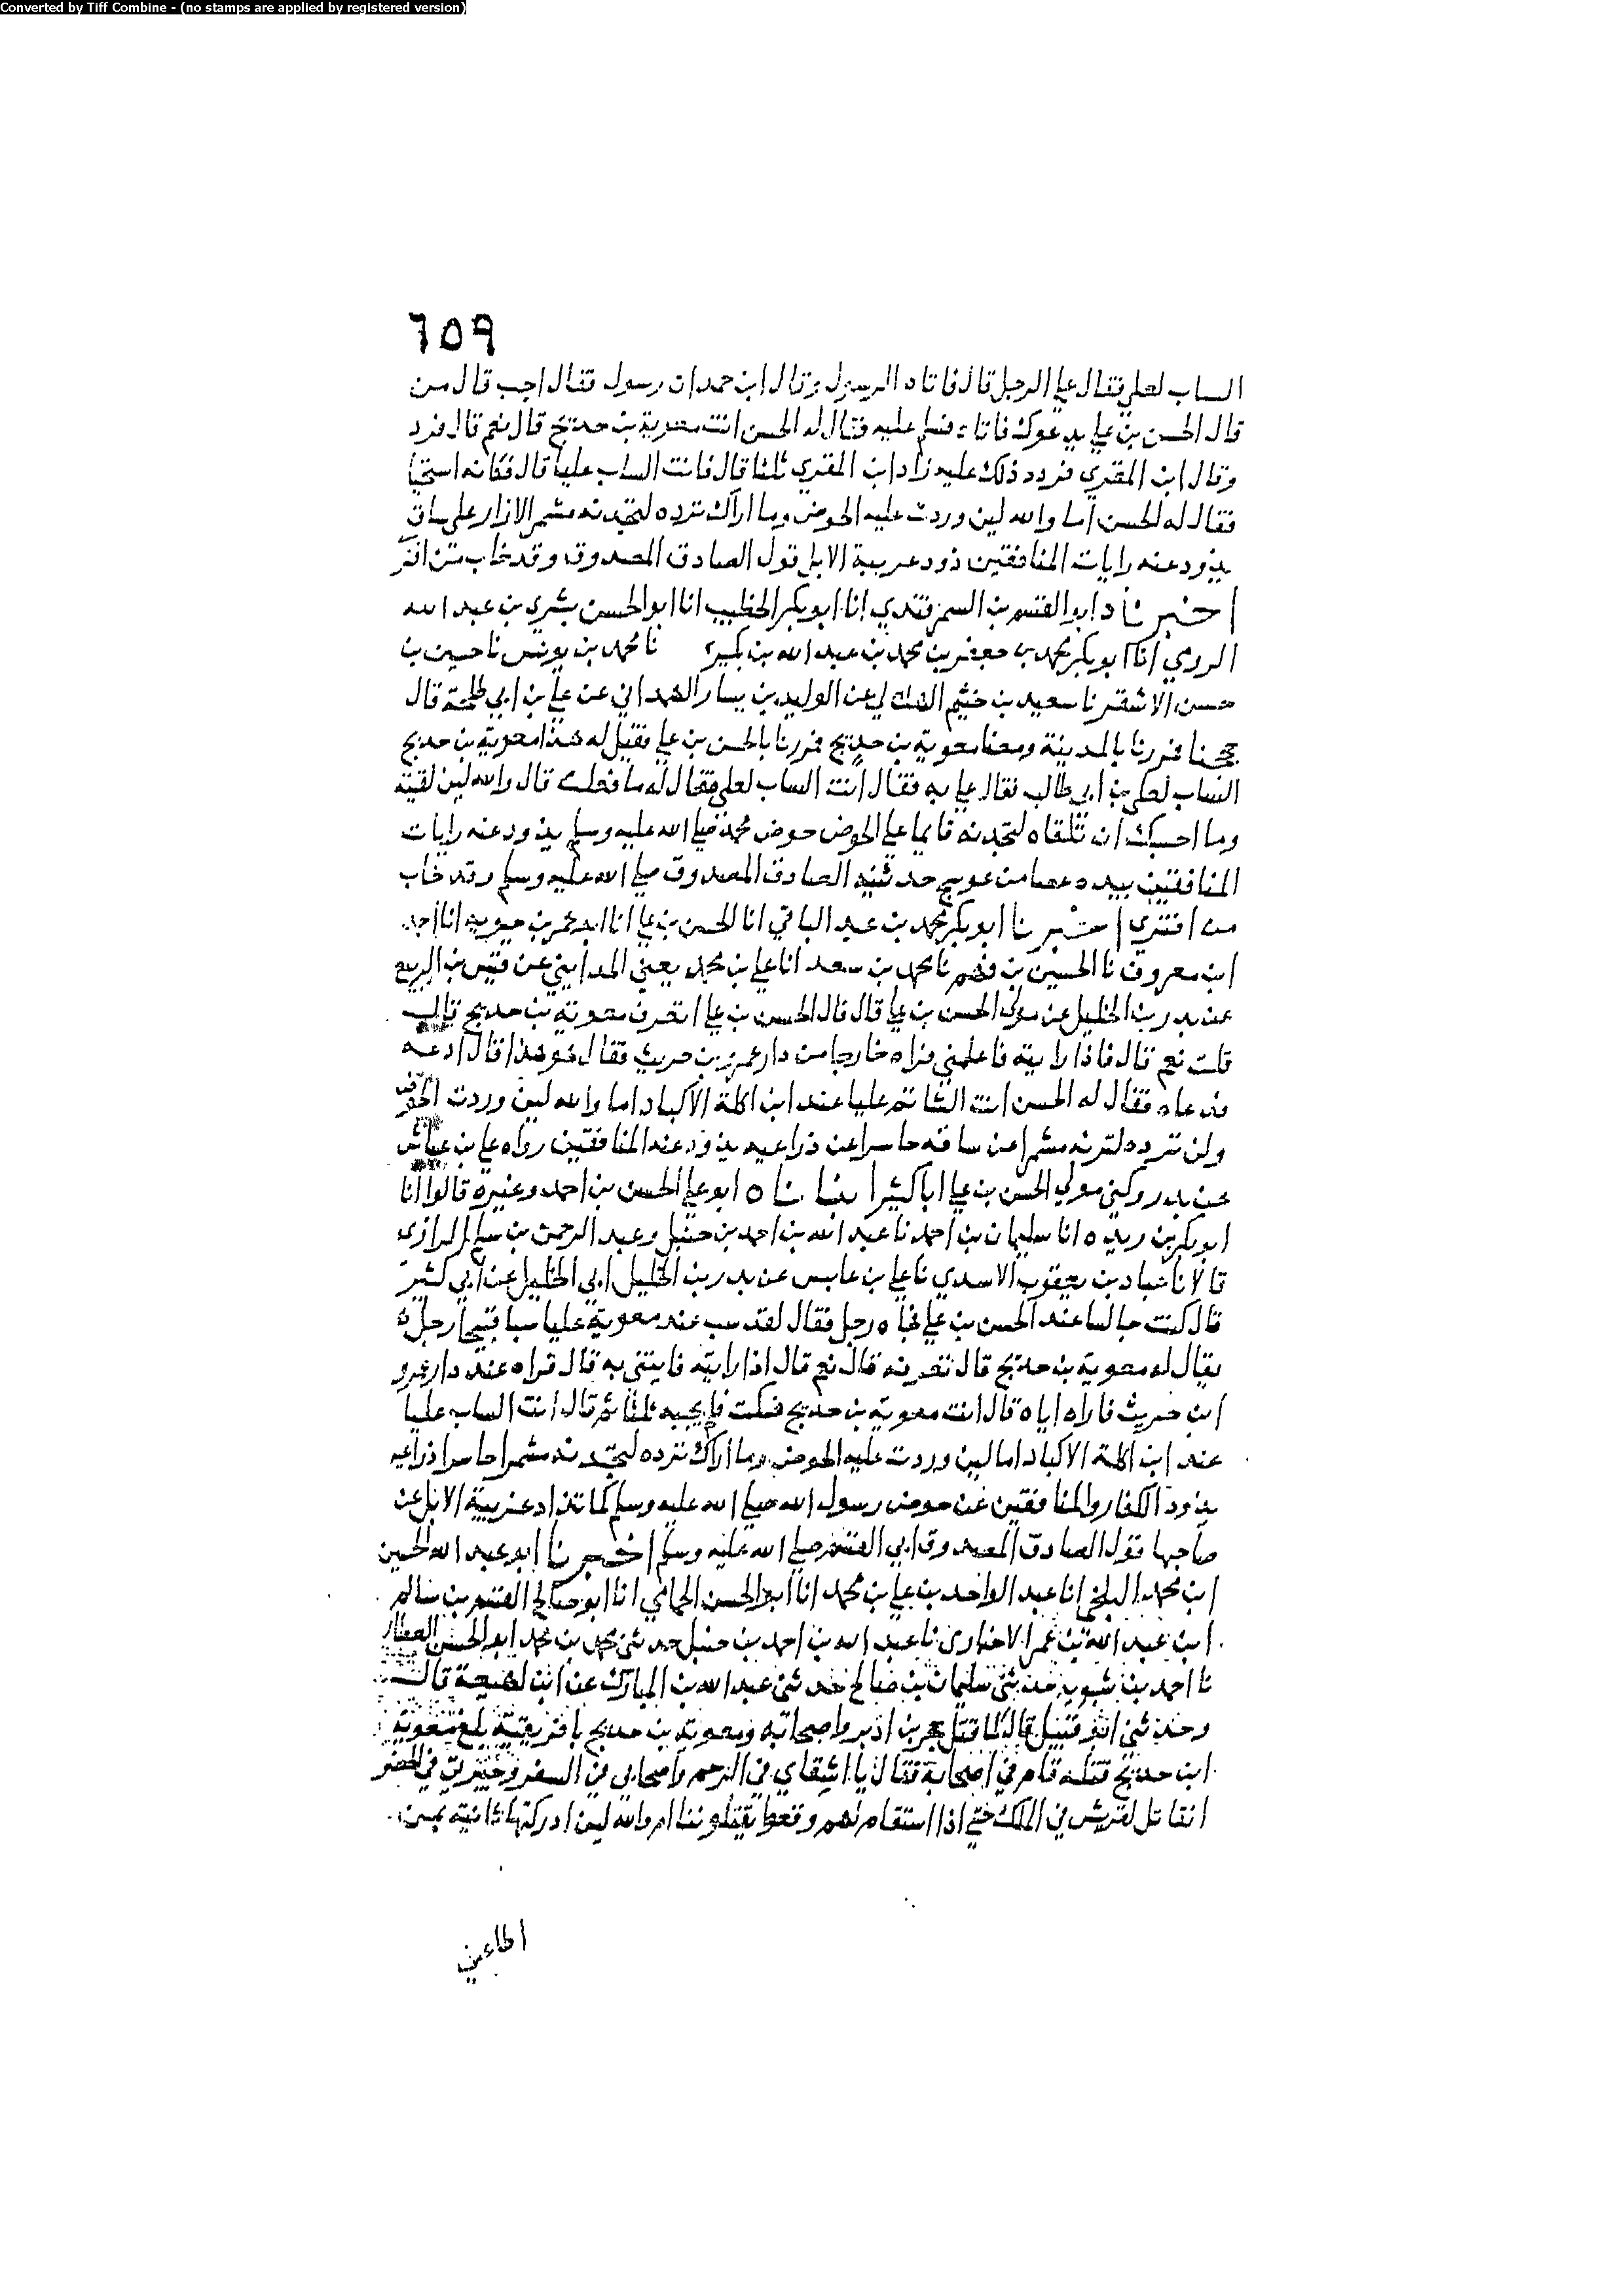 Converted by Tiff Combine - (no stamps are applied by registered version)
٦٥٩
الساب لعلي فقال علي الرجل قال فاتاه الرسول وقال ابن حمدان رسول فقال اجب قال من
قال الحسن بن علي يدعوك فاتاه فسلم عليه فقال له الحسن انت معوية بن حديج قال نعم قال فرد
وقال ابن المقري فردد ذلك عليه زاد ابن المقري ثلثا قال فانت الساب عليا قال فكانه استحيا
فقال له الحسن اما والله لين وردت عليه الحوض وما اراك ترده لتجدنه مشمر الازار على ساق
يذود عنه رايات المنافقين ذود غريبة الابل قول الصادق المصدوق وقد خاب من افترى
اخبرنا ابو القسم بن السمرقندي انا ابو بكر الخطيب انا ابو الحسن بشري بن عبد الله
الرومي انا ابو بكر محمد بن جعفر بن محمد بن عبد الله بن بكير نا محمد بن يونس نا حسين بن
حسن الاشقر نا سعيد بن خثيم الهلالي عن الوليد بن يسار الهمداني عن علي بن ابي طلحة قال
حججنا فمررنا بالمدينة ومعنا معوية بن حديج فمررنا بالحسن بن علي فقيل له هذا معوية بن حديج
الساب لعلي بن ابي طالب فقال علي به فقال انت الساب لعلي فقال له ما فعلت قال والله لين لقيته
وما احسبك ان تلقاه لتجدنه قايما على الحوض حوض محمد صلى الله عليه وسلم يذود عنه رايات
المنافقين بيده عصا من عوسج حدثنيه الصادق المصدوق صلى الله عليه وسلم وقد خاب
من افترى اخبرنا ابو بكر محمد بن عبد الباقي انا الحسن بن علي انا ابو عمر بن حيويه انا احمد
ابن معروف نا الحسين بن فهم نا محمد بن سعد انا علي بن محمد يعني المدايني عن قيس بن الربيع
عن بدر بن الخليل عن مولى الحسن بن علي قال قال الحسن بن علي اتعرف معوية بن حديج قال
قلت نعم قال فاذا رايته فاعلمني فراه خارجا من دار عمرو بن حريث فقال هو هذا قال ادعه
فدعاه فقال له الحسن انت الشاتم عليا عند ابن اكلة الاكباد اما والله لين وردت الحوض
ولن ترده لترنه مشمرا عن ساقه حاسرا عن ذراعيه يذود عنه المنافقين رواه علي بن عباس
عن بدر وكنى مولى الحسن بن علي ابا كثير انباناه ابو علي الحسن بن احمد وغيره قالوا انا
ابو بكر بن ريذه انا سليمان بن احمد نا عبد الله بن احمد بن حنبل وعبد الرحمن بن سلم الرازي
قالا نا عباد بن يعقوب الاسدي نا علي بن عابس عن بدر بن الخليل ابي الخليل عن ابي كثير
قال كنت جالسا عند الحسن بن علي فجاه رجل فقال لقد سب عند معوية عليا سبا قبيحا رجل
يقال له معوية بن حديج قال تعرفه قال نعم قال اذا رايته فايتني به قال فراه عند دار عمرو
ابن حريث فاراه اياه قال انت معوية بن حديج فسكت فلم يجبه ثلثا ثم قال انت الساب عليا
عند ابن اكلة الاكباد اما لين وردت عليه الحوض وما اراك ترده لتجدنه مشمرا حاسرا ذراعيه
يذود الكفار والمنافقين عن حوض رسول الله صلى الله عليه وسلم كما تذاد غريبة الابل عن
صاحبها قول الصادق المصدوق ابي القسم صلى الله عليه وسلم اخبرنا ابو عبد الله الحسين
ابن محمد البلخي انا عبد الواحد بن علي بن محمد انا ابو الحسن الحمامي انا ابو صالح القسم بن سالم
ابن عبد الله بن عمر الاخباري نا عبد الله بن احمد بن حنبل حدثني محمد بن محمد ابو الحسن العطار
نا احمد بن شبويه حدثني سليمان بن صالح حدثني عبد الله بن المبارك عن ابن لهيعة قال
وحدثني ابو قبيل قال لما قتل حجر بن ادبر واصحابه ومعوية بن حديج بافريقية بلغ معوية
ابن حديج قتله قام في اصحابه فقال يا اشقاي في الرحم واصحابي في السفر وخيرتي في الحضر
انقاتل لقريش في الملك حتى اذا استقام لهم وقعوا يقتلوننا ام والله لين ادركتها ثانية بمن
اطاعني